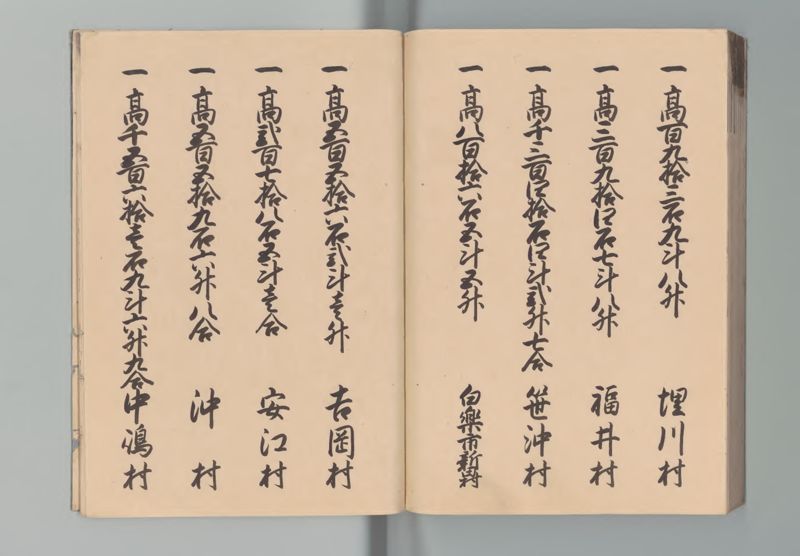 一 高百九拾三石九斗八升 埋川村
一 高三百九拾四石七斗八升 福井村
一 高千三百四拾石四斗弐升七合 笹沖村
一 高八百拾六石五斗五升 白楽市新村
一 高五百五拾六石弐斗壱升 吉岡村
一 高弐百七拾八石五斗壱合 安江村
一 高五百五拾九石六升八合 沖村
一 高千五百六拾壱石九斗六升九合 中嶋村